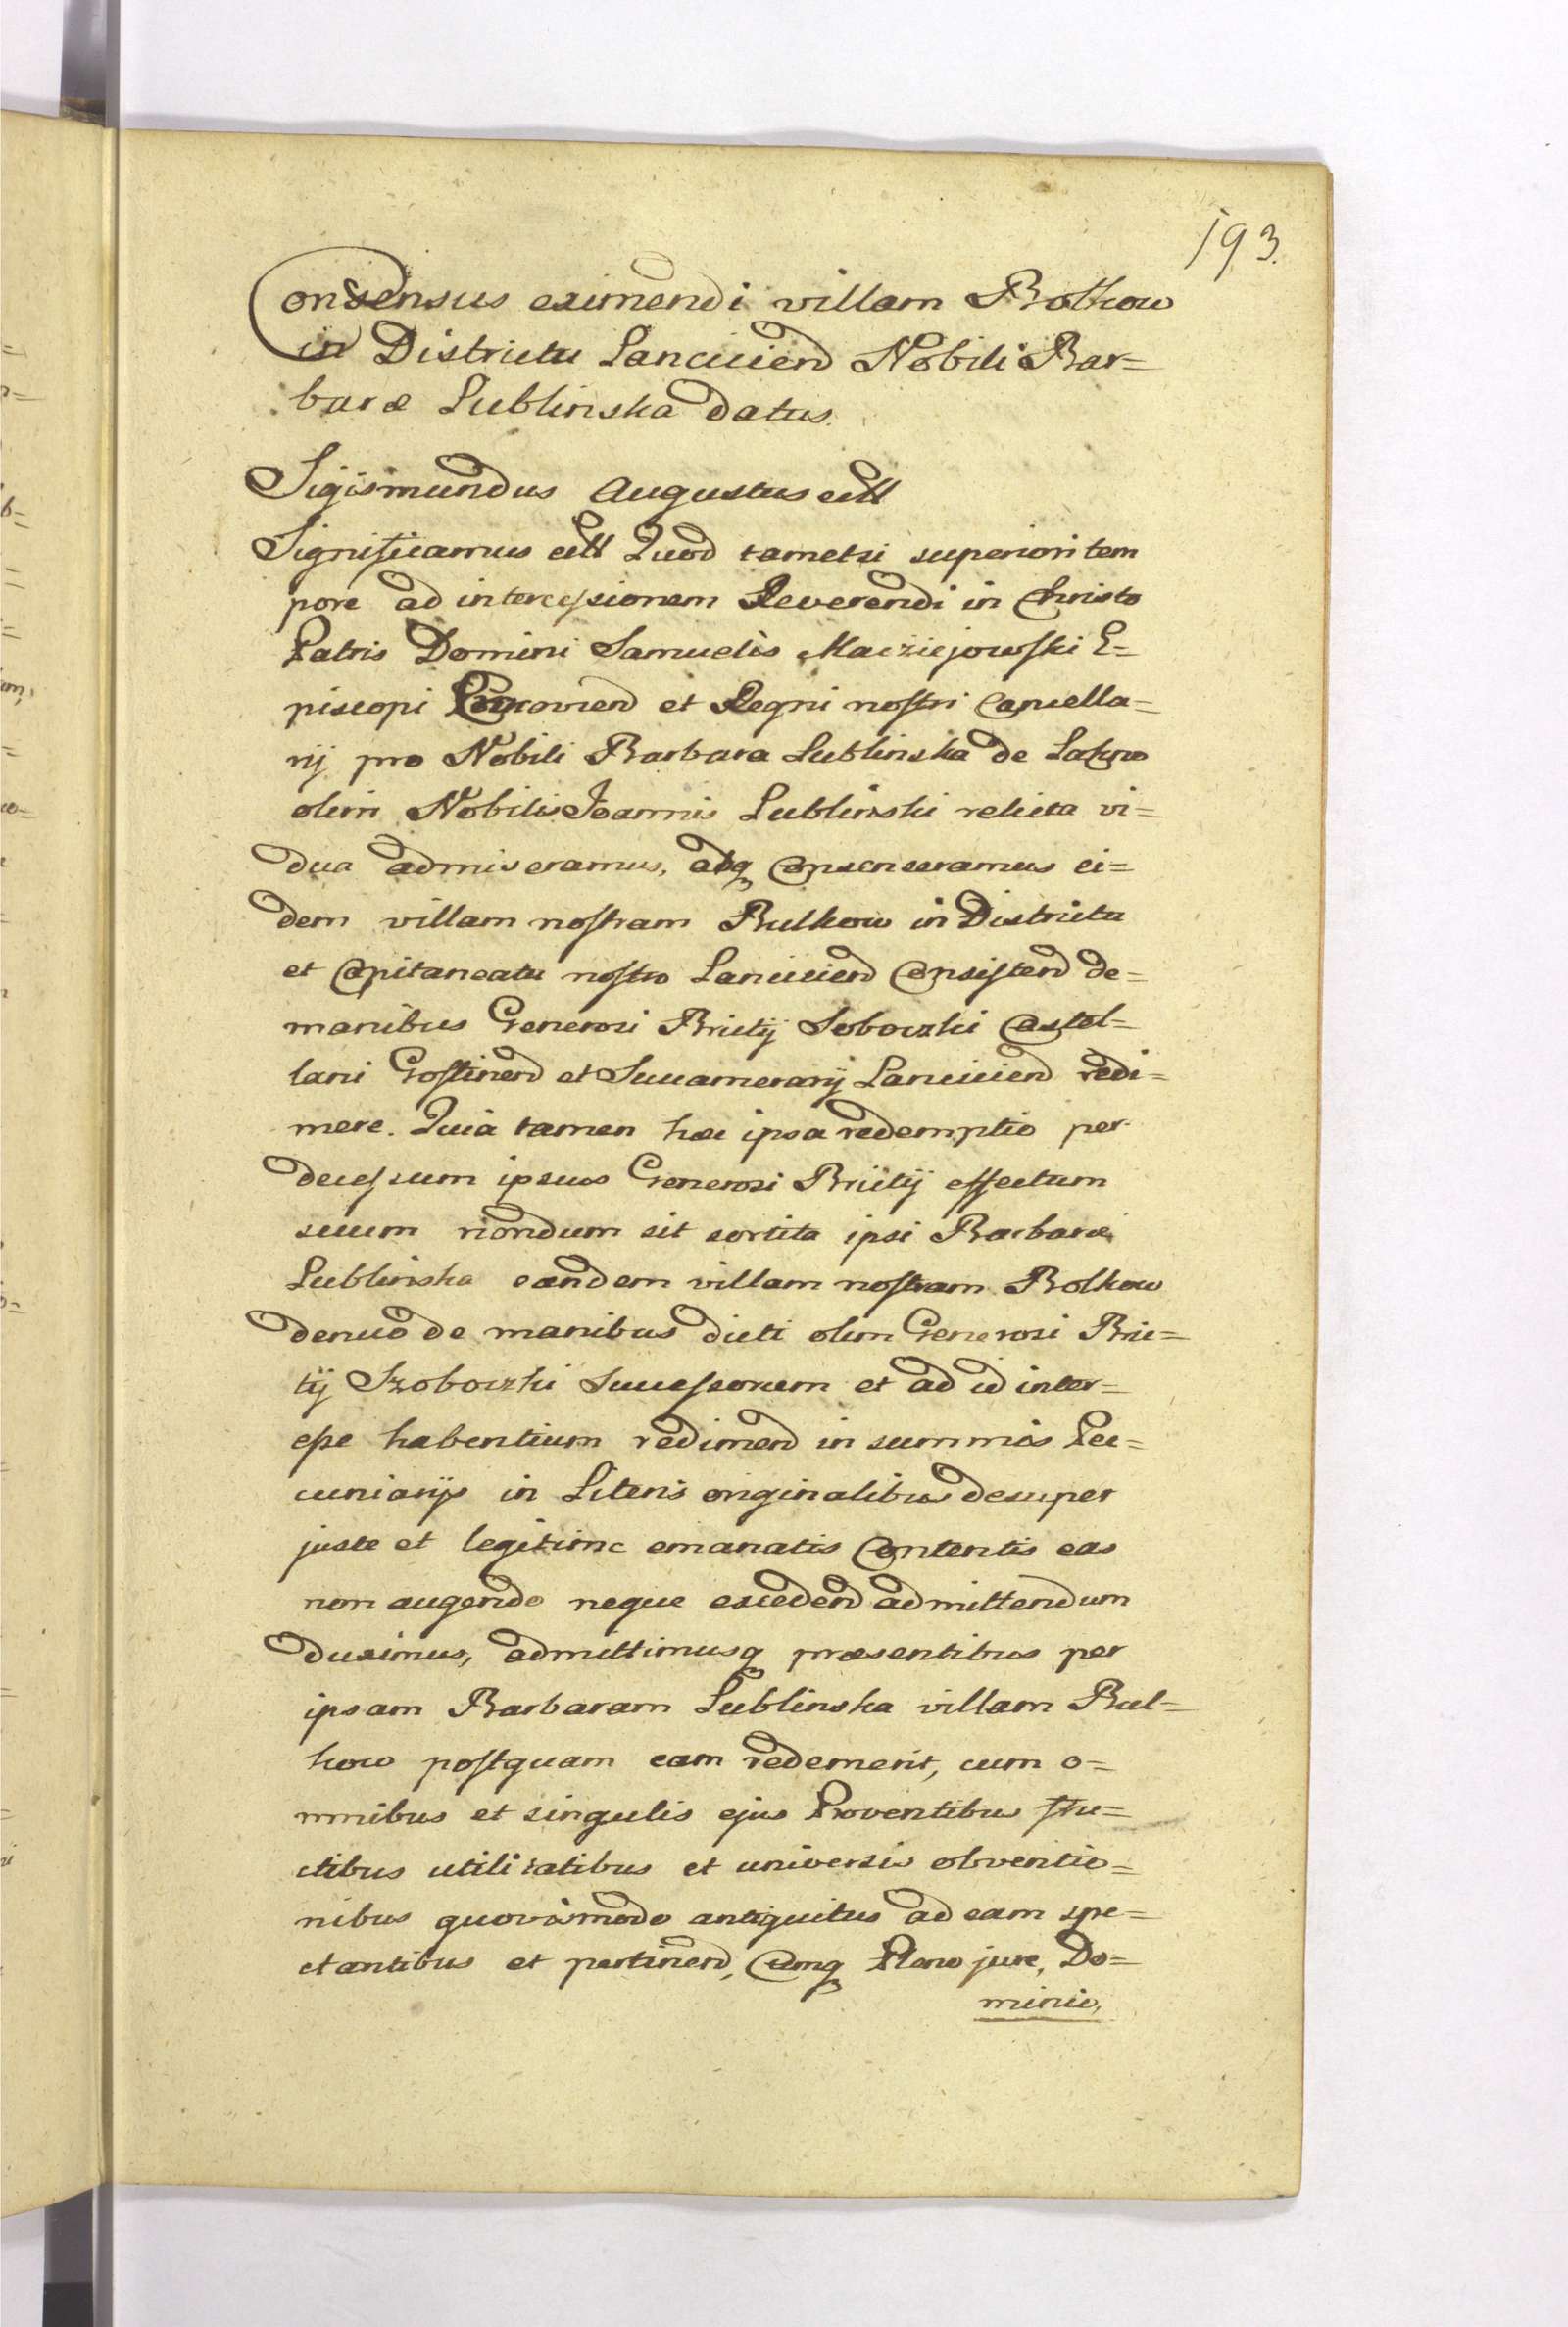 193.
Consensus eximendi villam Bolkow
in Districtu Lanciciend Nobili Bar=
baræ Lublinska datus.
Sigismundus Augustus ett
Significamus ett Quod tametsi superiori tem
pore ad intercessionem Reverendi in Christo
Patris Domini Samuelis Macziejowski E=
piscopi Cracoviend et Regni nostri Cancella=
rij pro Nobili Barbara Lublinska de
olim Nobilis Joannis Lublinski relicta vi=
dua admiseramus, atq consenseramus ei=
dem villam nostram Bulkow in Districtu
et Capitaneatu nostro Lanciciend Consistend de=
manibus Generosi Brictij Soboczki Castel=
lani Gostinend et Succamerarij Lanciciend redi=
mere. Quia tamen hæc ipsa redemptio per
decessum ipsius Generosi Brictij effectum
suum nondum sit sortita ipsi Barbaræ
Lublinska eandem villam nostram Bolkow
denuo de manibus dicti olim Generosi Bric=
tij Szoboczki Successorum et ad id inter=
esse habentium redimend in summis Pec=
cuniarijs in Literis originalibus desuper
juste et legitime emanatis Contentis eas
non augendo neque excedend admittendum
duximus, admittimusq præsentibus per
ipsam Barbaram Lublinska villam Bul=
kow postquam eam redemerit, cum o=
mnibus et singulis ejus Proventibus fru=
ctibus utilitatibus et universis obventio=
nibus quovismodo antiquitus ad eam spe=
ctantibus et pertinend, Cumq Pleno jure, Do=
minio,